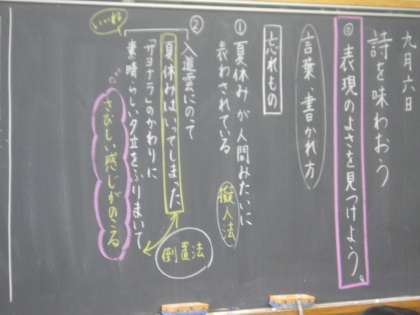 九月六日
詩を味わおう
◎表現のよさを見つけよう。
言葉、書かれ方
忘れもの
①夏休みが人間みたいに
表わされている
擬人法
②入道雲にのって
夏休みはいってしまった
倒置法
「サヨナラ」のかわりに
素晴らしい夕立をふりまいて
さびしい感じがのこる